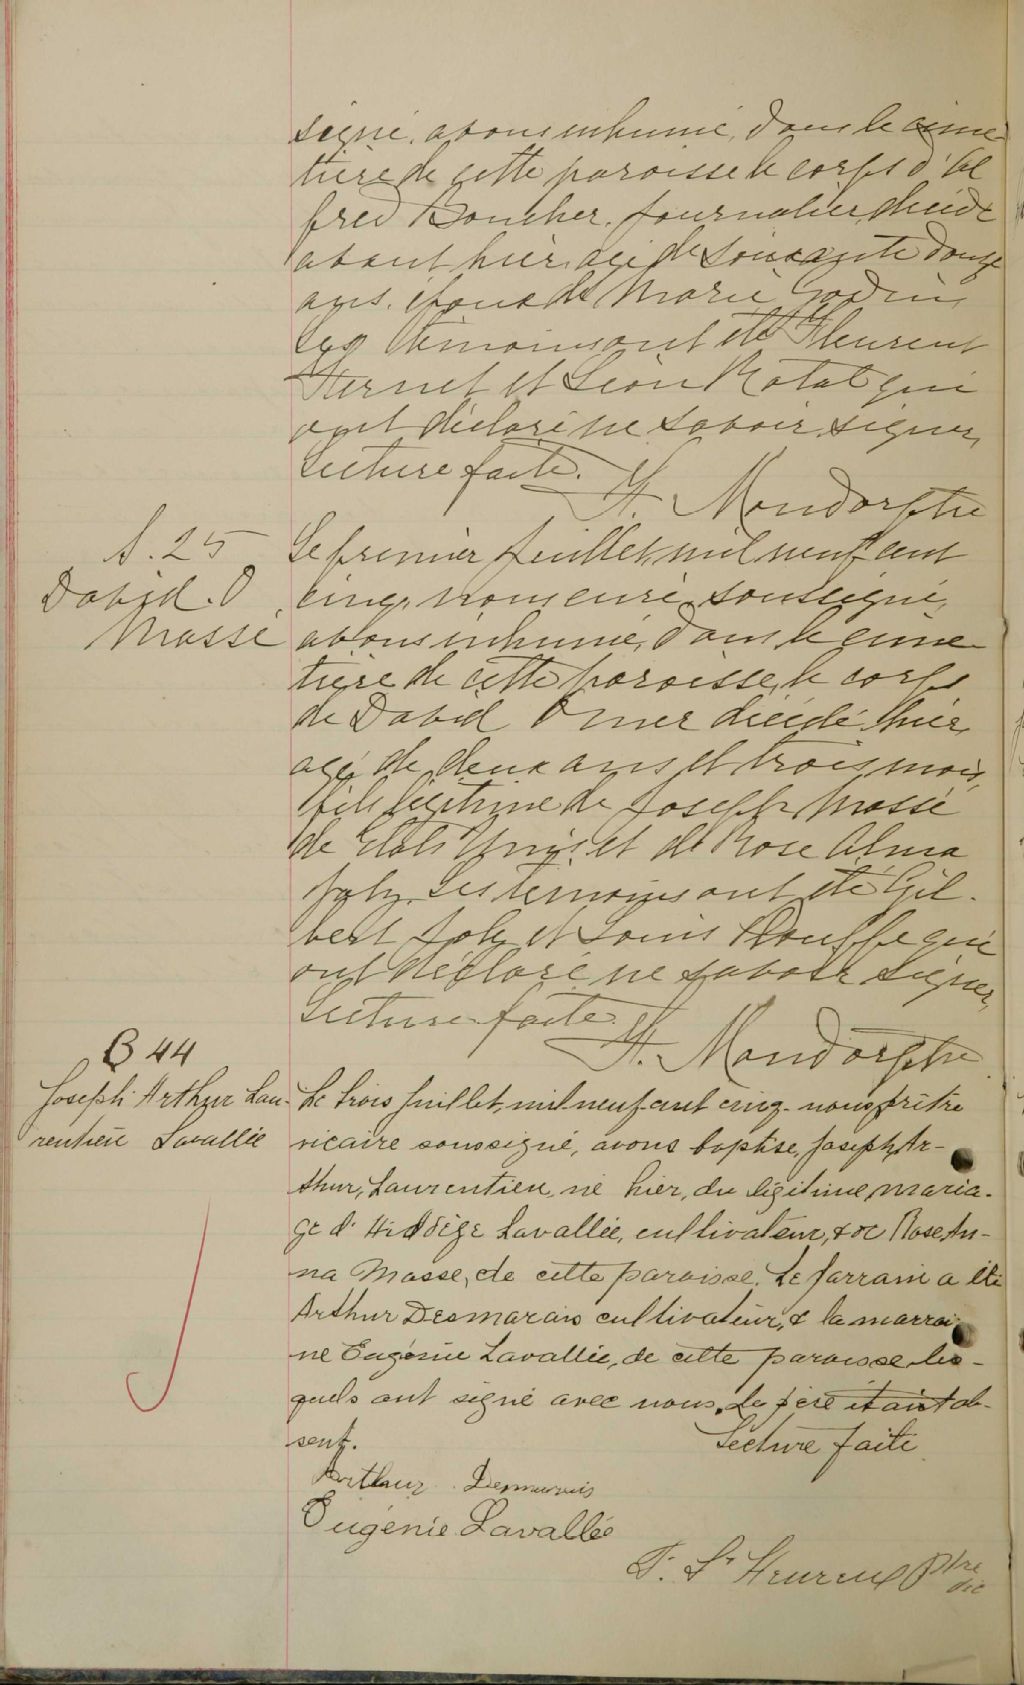 signé, avons inhumé, dans le cime-
tière de cette paroisse le corps d'Al
fred Boucher, journalier décédé
avant hier, agé de soixante douze
ans, époux de Marie Godin,
Les témoins ont été Fleurent
et Léon Ratat qui
ont déclaré ne savoir signer,
Lecture faite.
H. Mondor Ptre
S. 25
David. O
Massé
Le premier juillet, mil neuf cent
cinq, nous curé soussigné,
avons inhumé, dans le cime-
tière de cette paroisse, le corps
de David Omer décédé hier,
agé de deux ans et trois mois,
fils légitime de Joseph Massé
de Etats Unis et de Rose Alma
Joly. Les témoins ont été Gil-
bert Joly et Louis qui
ont déclaré ne savoir signer,
Lecture faite
H. Mondor Ptre
B 44
Joseph Arthur Lau-
rentien Lavallée
Le trois Juillet, mil neuf cent cinq, nous prêtre
vicaire soussigné, avons baptisé, Joseph, Ar-
thur, Laurentien, né hier, du légitime maria-
ge d' Lavallée, cultivateur, & de Rose An-
na Masse, de cette paroisse. Le parrain a été
Arthur Desmarais cultivateur, & la marrai
ne Eugénie Lavallée, de cette paroisse les-
quels ont signé avec nous. Le père était ab-
sent.
Lecture faite
Arthur Desmarais
Eugénie Lavallée
F. L'Heureux Ptre
vic